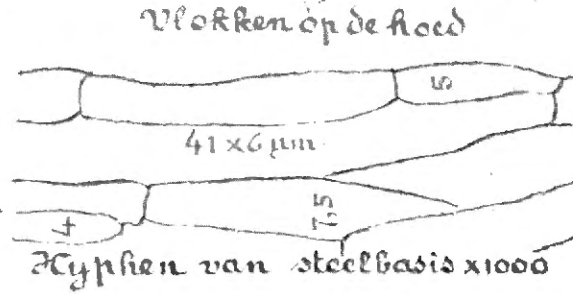 Vlokken op de hoed
5
41 x 6 µm
7,5
4
Hyphen van steelbasis x1000